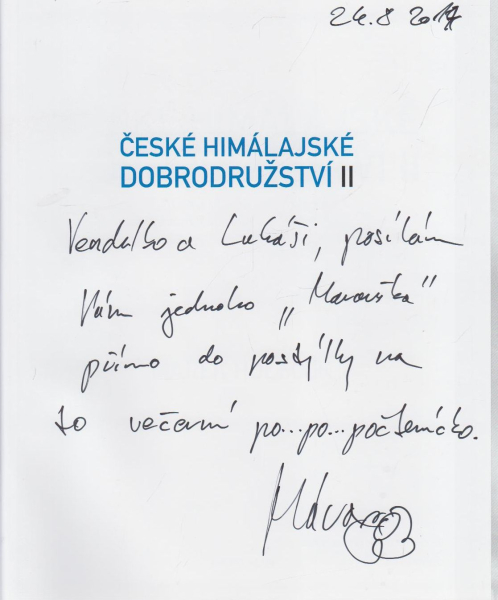 24.8 2017
ČESKÉ HIMÁLAJSKÉ
DOBRODRUŽSTVÍ II
Vendulko a Lukáši, posílám
Vám jednoho „Marouška"
přímo do postýlky na
to večerní po...po...počteníčko.